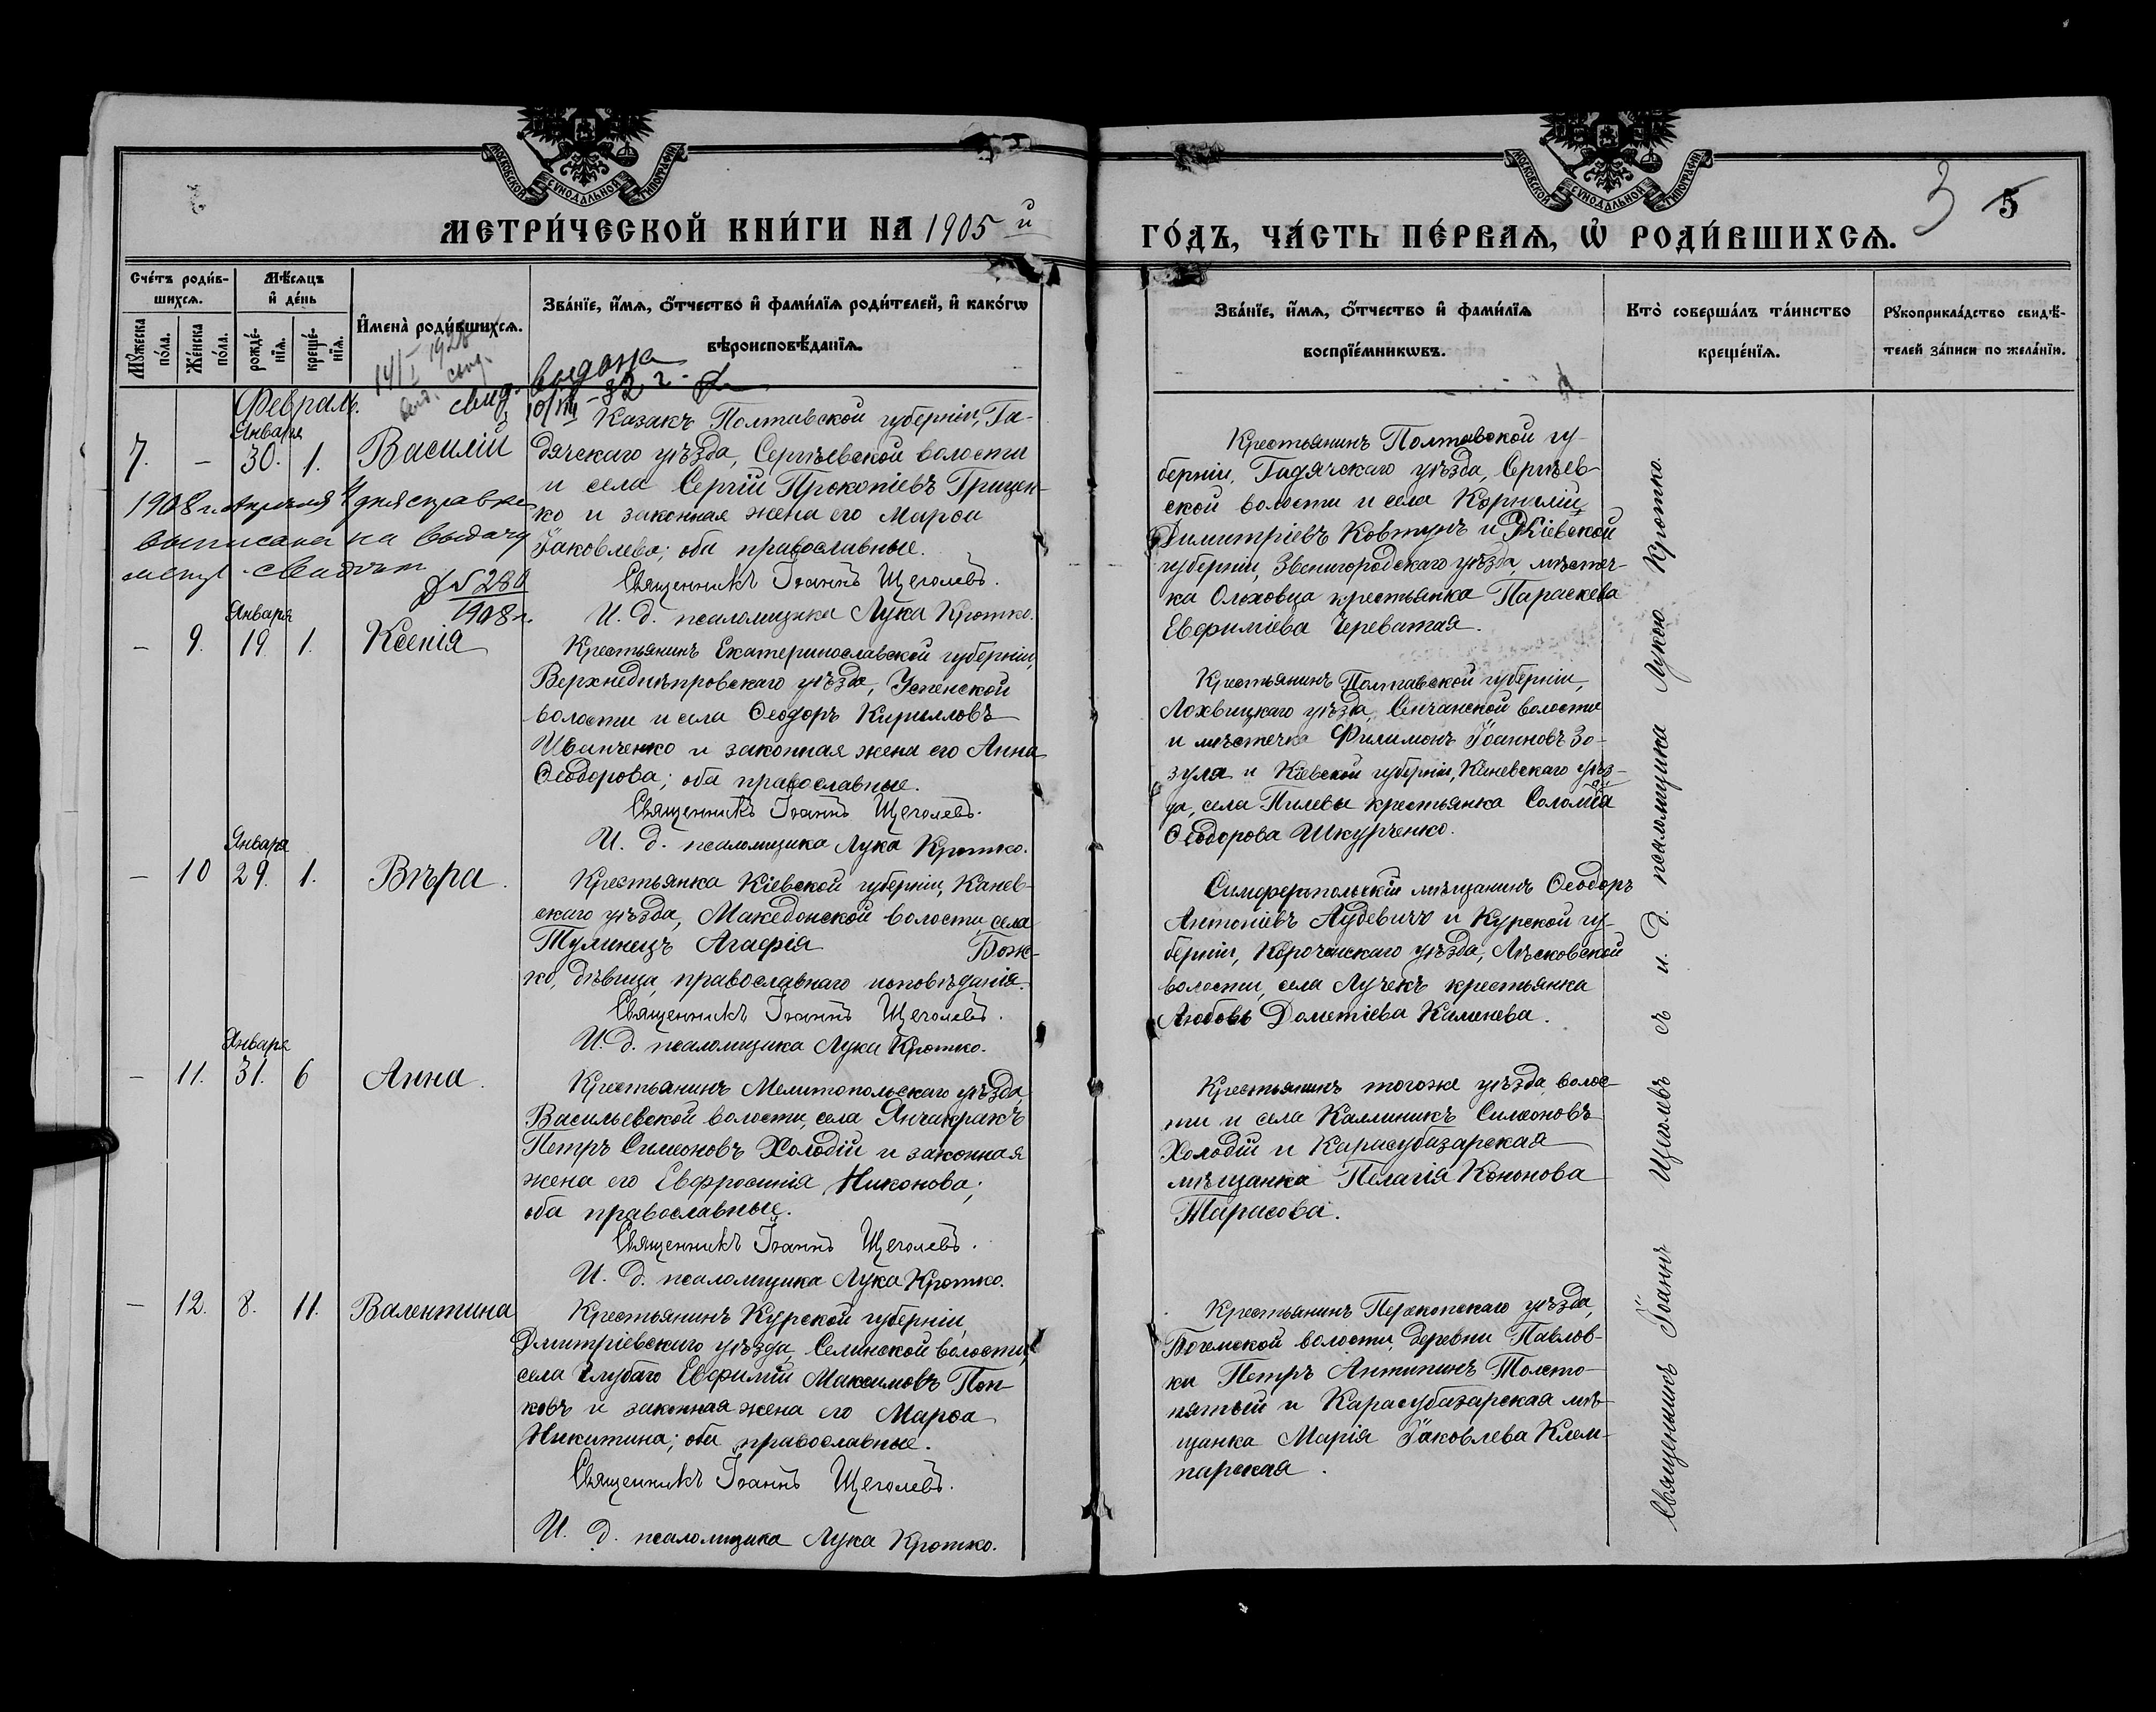 МОСКОВСКОЙ СѴНОДАЛЬНОЙ ТИПОГРАФІИ
МОСКОВСКОЙ СѴНОДАЛЬНОЙ ТИПОГРАФІИ
3 5
МЕТРИ́ЧЕСКОЙ КНИ́ГИ НА 1905 й
ГО́ДЪ, ЧА́СТЬ ПЕ́РВАѦ, Ѡ҆ РОДИ́ВШИХСѦ.
Сче́тъ роди́в-
шихсѧ.
Мѣ́сѧцъ
и҆ де́нь
Мꙋ́жеска по́ла.
Же́нска по́ла.
рожде́-
нїѧ.
креще́-
нїѧ.
И҆мена̀ роди́вшихсѧ.
Зва́нїе, и҆́мѧ, ѻ҆́тчество и҆ фами́лїѧ роди́телей, и҆ како́гѡ
вѣроисповѣ́данїѧ.
Зва́нїе, и҆́мѧ, ѻ҆́тчество и҆ фами́лїѧ
воспрїе́мникѡвъ.
Кто̀ соверша́лъ та́инство
креще́нїѧ.
Рꙋкоприкла́дство свидѣ́-
телей за́писи по жела́нїю.
14/I 1928
свид. выдана
10/III - 32 г.
Февраль.
Января
7. – 30. 1. Василій
1908 г. Апрѣля 4 дня справка
выписана на выдачу
метр. свидѣт
№ 280
1908 г.
Казакъ Полтавской губерніи, Га-
дячскаго уѣзда, Сергѣевской волости
и села Сергій Прокопіевъ Грицен-
ко и законная жена его Марѳа
Іаковлева; оба православные.
Священникъ Іоаннъ Щеголевъ.
И. д. псаломщика Лука Кротко.
Крестьянинъ Полтавской гу-
берніи, Гадячскаго уѣзда, Сергѣев-
ской волости и села Корнилій
Димитріевъ Ковтунъ и Кіевской
губерніи, Звенигородскаго уѣзда, мѣстеч-
ка Ольховца крестьянка Параскева
Евфиміева Череватая.
Января
– 9. 19. 1. Ксенія
Крестьянинъ Екатеринославской губерніи,
Верхнеднѣпровскаго уѣзда, Успенской
волости и села Ѳеодоръ Кирилловъ
Иванченко и законная жена его Анна
Ѳеодорова; оба православные.
Священникъ Іоаннъ Щеголевъ.
И. д. псаломщика Лука Кротко.
Крестьянинъ Полтавской губерніи,
Лохвицкаго уѣзда, Сенчанской волости
и мѣстечка Филимонъ Іоанновъ Зо-
зуля и Кіевской губерніи, Каневскаго уѣз-
да, села Пилевы крестьянка Соломія
Ѳеодорова Шкурченко.
Января
– 10 29. 1. Вѣра.
Крестьянка Кіевской губерніи, Канев-
скаго уѣзда, Македонской волости, села
Тулинецъ Агафія Бож-
ко, дѣвица, православнаго исповѣданія.
Священникъ Іоаннъ Щеголевъ.
И. д. псаломщика Лука Кротко.
Симферопольскій мѣщанинъ Ѳеодоръ
Антоніевъ Аудевичъ и Курской гу-
берніи, Корочанскаго уѣзда, Лѣсковской
волости, села Лучекъ крестьянка
Любовь Дометіева Каменева.
Января
– 11. 31. 6 Анна.
Крестьянинъ Мелитопольскаго уѣзда,
Васильевской волости, села Янчакракъ
Петръ Симеоновъ Холодій и законная
жена его Евфросинія Никонова;
оба православные.
Священникъ Іоаннъ Щеголевъ.
И. д. псаломщика Лука Кротко.
Крестьянинъ тогоже уѣзда, волос-
ти и села Каллиникъ Симеоновъ
Холодій и Карасубазарская
мѣщанка Пелагія Кононова
Тарасова.
– 12. 8. 11. Валентина
Крестьянинъ Курской губерніи,
Дмитріевскаго уѣзда, Селинской волости,
села Глубаго Евфимій Максимовъ Поп-
ковъ и законная жена его Марѳа
Никитина; оба православные.
Священникъ Іоаннъ Щеголевъ.
И. д. псаломщика Лука Кротко.
Крестьянинъ Перекопскаго уѣзда,
Богемской волости, деревни Павлов-
ки Петръ Антипинъ Толсто-
пятый и Карасубазарская мѣ-
щанка Марія Іаковлева Клем-
парская.
Священникъ Іоаннъ Щеголевъ съ и. д. псаломщика Лукою Кротко.